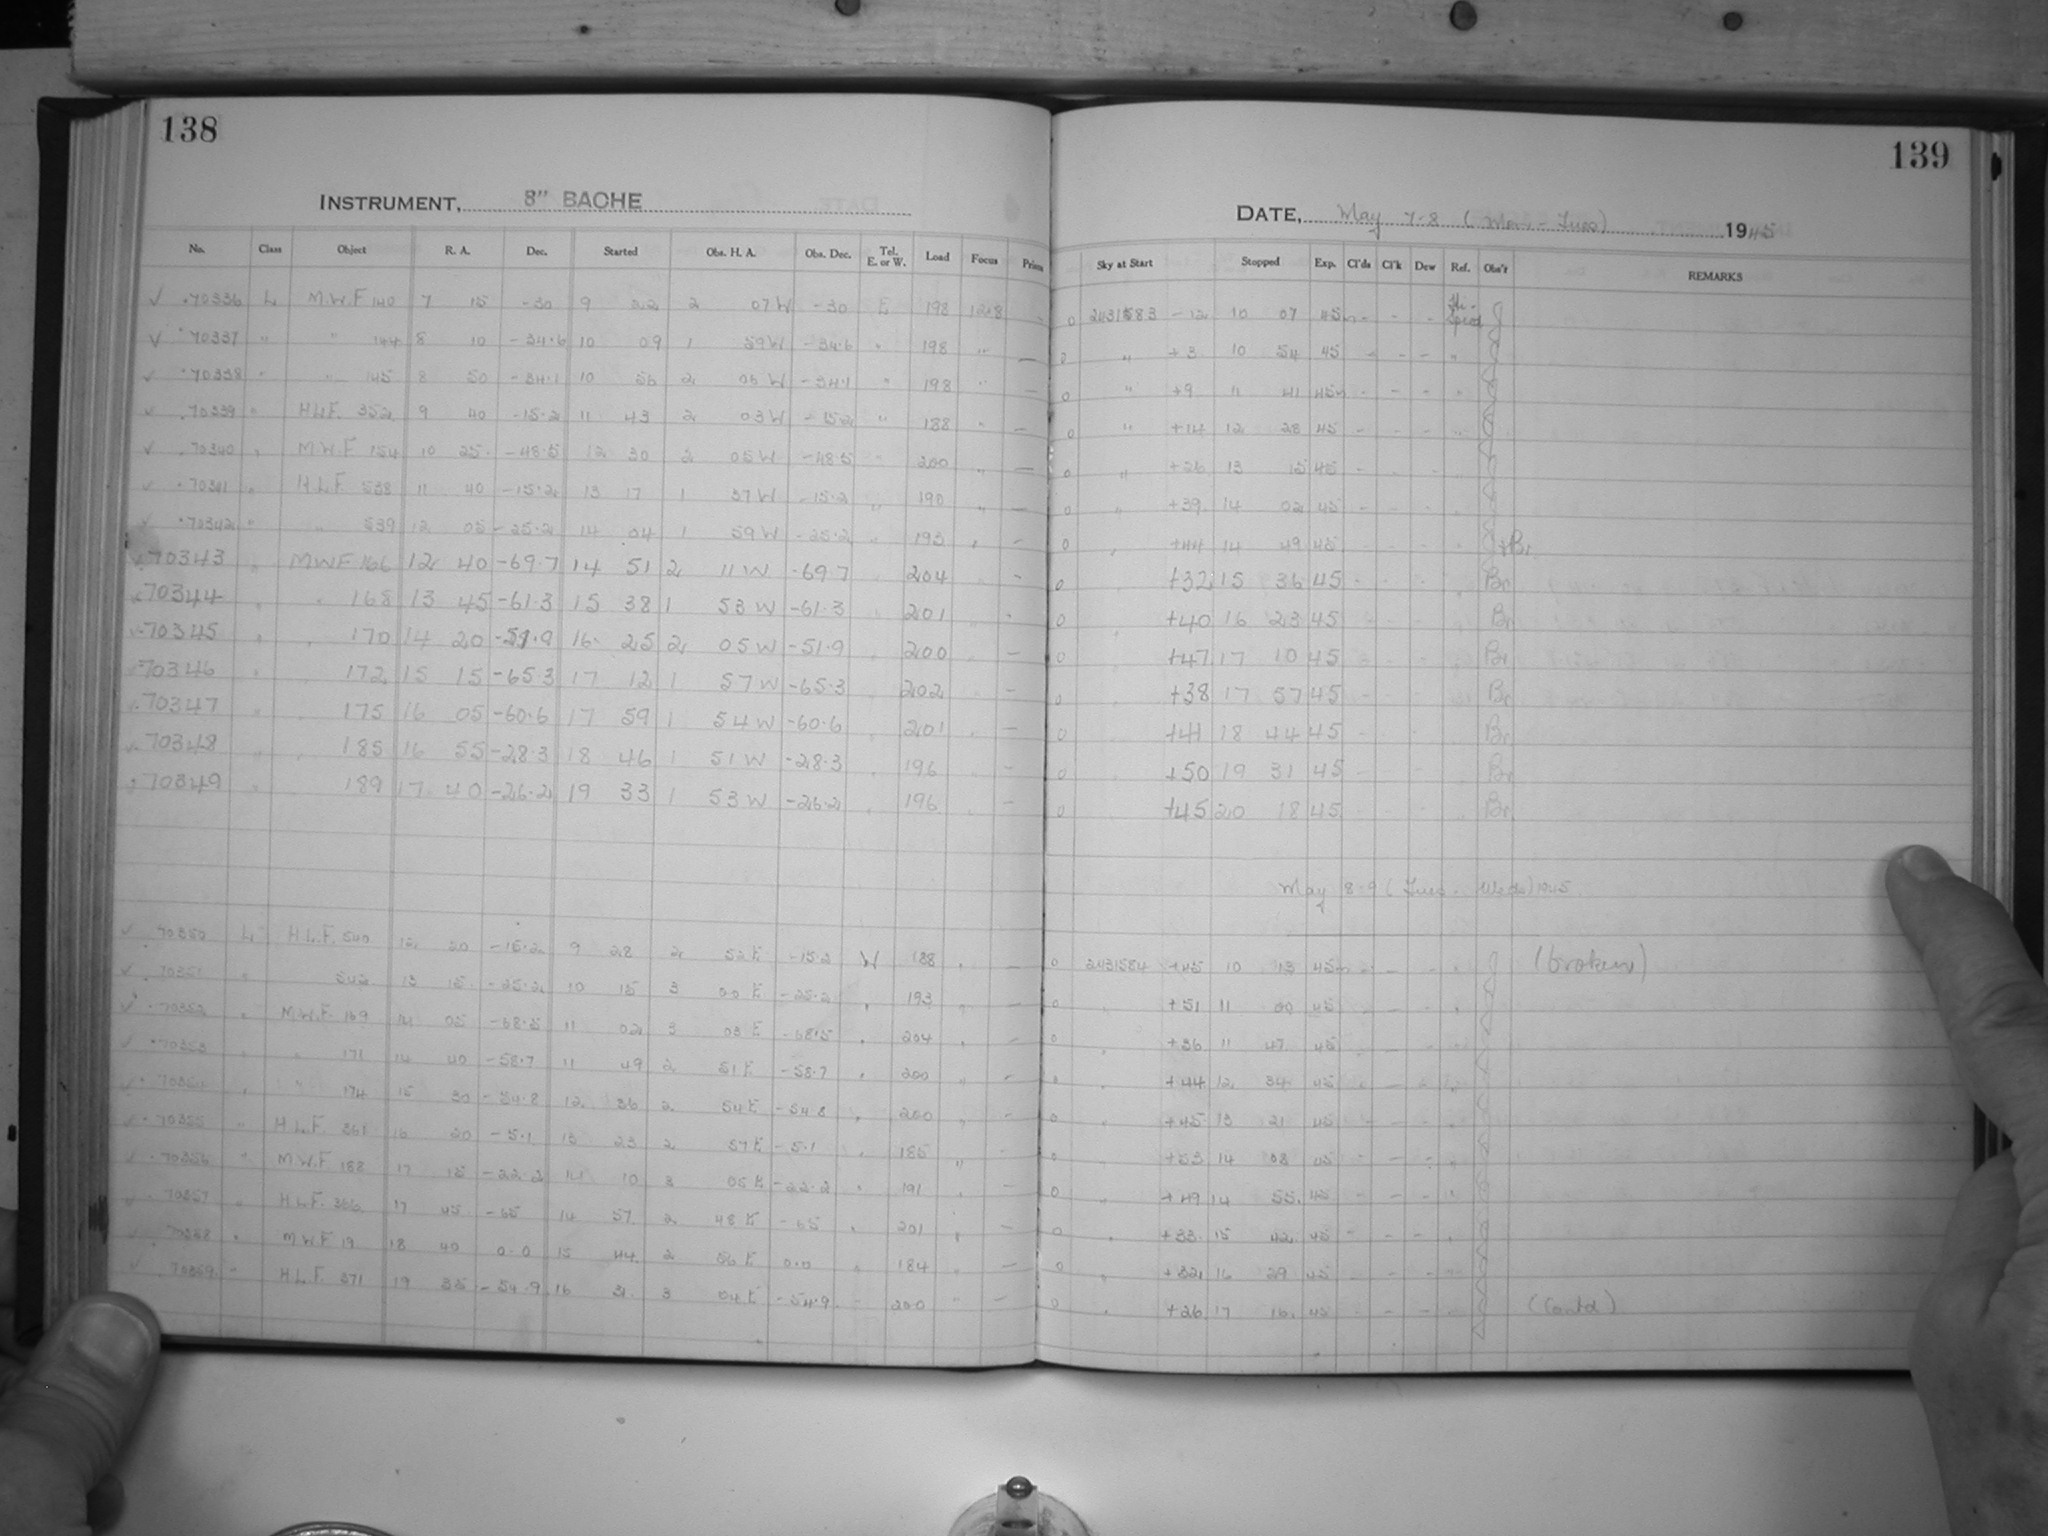 138
INSTRUMENT, 8" BACHE
No. Class Object R. A. Dec. Started Obs. H. A. Obs. Dec. Tel. E. or W. Load Focus Prism
70336 L M.W.F 140 7 15 -30 9 22 2 07 W -30 E 198 12.8 -
70337 " " 144 8 10 -34.6 10 09 1 59 W -34.6 " 198 " -
70338 " " 145 8 50 -34.1 10 56 2 05 W -34.1 " 198 " -
70339 " H.L.F. 352 9 40 -15.2 11 43 2 03 W -15.2 " 188 " -
70340 " M.W.F 154 10 25 -48.5 12 30 2 05 W -48.5 " 200 " -
70341 " H.L.F. 538 11 40 -15.2 13 17 1 37 W -15.2 " 190 " -
70342 " " 539 12 05 -25.2 14 04 1 59 W -25.2 " 193 " -
70343 " MWF 166 12 40 -69.7 14 51 2 11 W -69.7 " 204 " -
70344 " " 168 13 45 -61.3 15 38 1 53 W -61.3 " 201 " -
70345 " " 170 14 20 -51.9 16 25 2 05 W -51.9 " 200 " -
70346 " 172 15 15 -65.3 17 12 1 57 W -65.3 " 202 " -
70347 " 175 16 05 -60.6 17 59 1 54 W -60.6 " 201 " -
70348 " " 185 16 55 -28.3 18 46 1 51 W -28.3 " 196 " -
70349 " 189 17 40 -26.2 19 33 1 53 W -26.2 " 196 " -
70350 L H.L.F. 540 12 20 -15.2 9 28 2 52 E -15.2 W 188 " -
70351 " 542 13 15 -25.2 10 15 3 00 E -25.2 " 193 " -
70352 " M.W.F. 169 14 05 -68.5 11 02 3 03 E -68.5 " 204 " -
70353 " " 171 14 40 -58.7 11 49 2 51 E -58.7 " 200 " -
70354 " " 174 15 30 -54.8 12 36 2 54 E -54.8 " 200 " -
70355 " H.L.F. 361 16 20 -5.1 13 23 2 57 E -5.1 " 185 " -
70356 " M.W.F 188 17 15 -22.2 14 10 3 05 E -22.2 " 191 " -
70357 " H.L.F. 366 17 45 -65 14 57 2 48 E -65 " 201 " -
70358 " M.W.F 19 18 40 0.0 15 44 2 56 E 0.0 " 184 " -
70359 " H.L.F. 371 19 35 -54.9 16 31 3 04 E -54.9 " 200 " -
139
DATE, May 7-8 (Mon - Tues) 1945
Sky at Start Stopped Exp. Cl'ds Cl'k Dew Ref. Obs'r REMARKS
0 2431583 -12 10 07 45m - - - Hi-Speed J
0 " +3 10 54 45 - - - "
0 " +9 11 41 45m - - - "
0 " +14 12 28 45 - - - "
0 " +26 13 15 45 - - -
0 " +39 14 02 45 - - -
0 " +44 14 49 45 - - - " +Br.
0 +32 15 36 45 - - - Br
0 +40 16 23 45 - - - Br
0 +47 17 10 45 - - - Br
0 +38 17 57 45 - - - Br
0 +41 18 44 45 - - - Br
0 +50 19 31 45 - - - Br
0 +45 20 18 45 - - - Br
May 8-9 (Tues - Weds) 1945
0 2431584 +45 10 13 45m - - - " J (broken)
0 " +51 11 00 45 - - -
0 " +36 11 47 45 - - -
0 " +44 12 34 45 - - -
0 " +45 13 21 45 - - -
0 " +53 14 08 45 - - -
0 " +49 14 55 45 - - -
0 " +33 15 42 45 - - -
0 " +32 16 29 45 - - -
0 " +26 17 16 45 - - - (Contd)